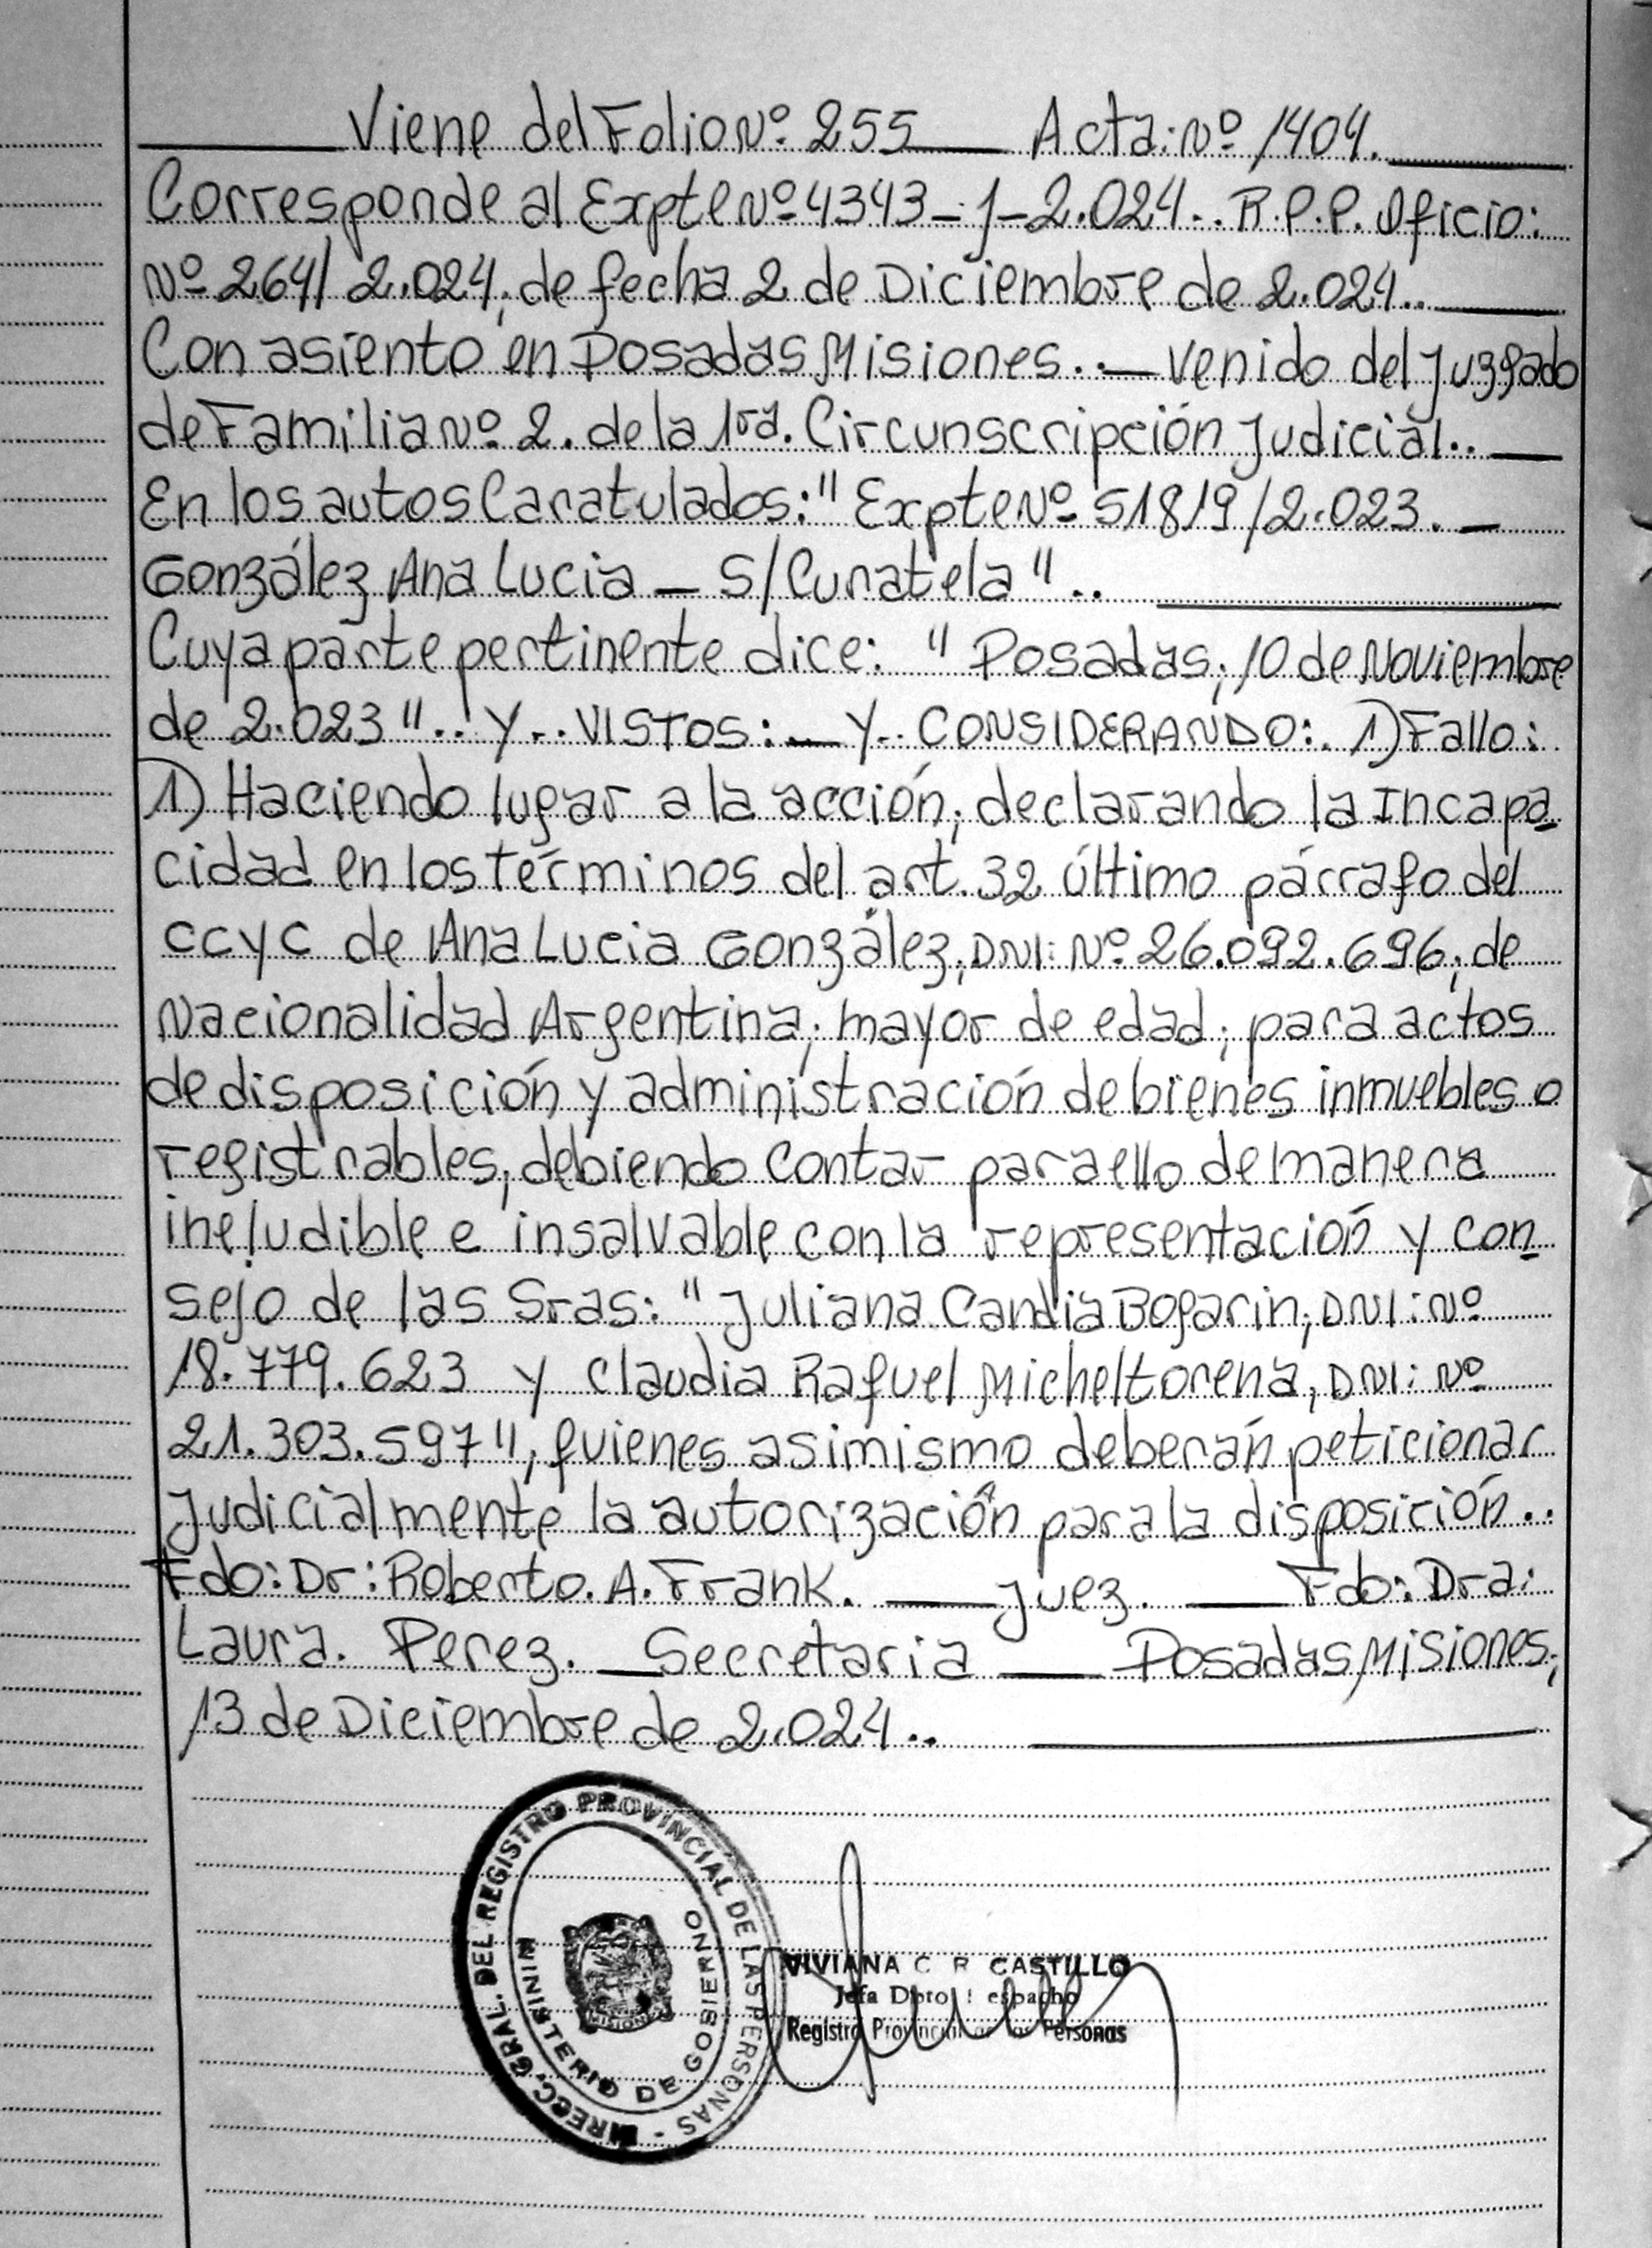 Viene del Folio Nº 255 Acta: Nº 1404.
Corresponde al Expte Nº 4343 - J - 2.024.. R.P.P. Oficio:
Nº 264/ 2.024, de fecha 2 de Diciembre de 2.024..
Con asiento en Posadas Misiones.. — Venido del Juzgado
de Familia Nº 2. de la 1ra. Circunscripción Judicial..
En los autos Caratulados: " Expte Nº 51819/2.023. —
González Ana Lucia — S/Curatela "..
Cuya parte pertinente dice: " Posadas, 10 de Noviembre
de 2.023 ".. Y.. VISTOS: — Y.. CONSIDERANDO: 1) Fallo:
1) Haciendo lugar a la acción, declarando la Incapa
cidad en los términos del art. 32 último párrafo del
CCYC de Ana Lucia González, DNI: Nº 26.092.696, de
Nacionalidad Argentina, mayor de edad, para actos
de disposición y administración de bienes inmuebles o
registrables, debiendo contar para ello de manera
ineludible e insalvable con la representación y con
sejo de las Sras: " Juliana Candia Bogarin, DNI: Nº
18.779.623 y Claudia Raquel Micheltorena, DNI: Nº
21.303.597", quienes asimismo deberán peticionar
Judicialmente la autorización para la disposición..
Fdo: Dr: Roberto. A. Frank. — Juez. — Fdo: Dra:
Laura. Perez. — Secretaria — Posadas Misiones,
13 de Diciembre de 2.024..
DIRECC. GRAL. DEL REGISTRO PROVINCIAL DE LAS PERSONAS -
MINISTERIO DE GOBIERNO
MISIONES
VIVIANA C R CASTILLO
Jefa Dpto Despacho
Registro Provincial de las Personas